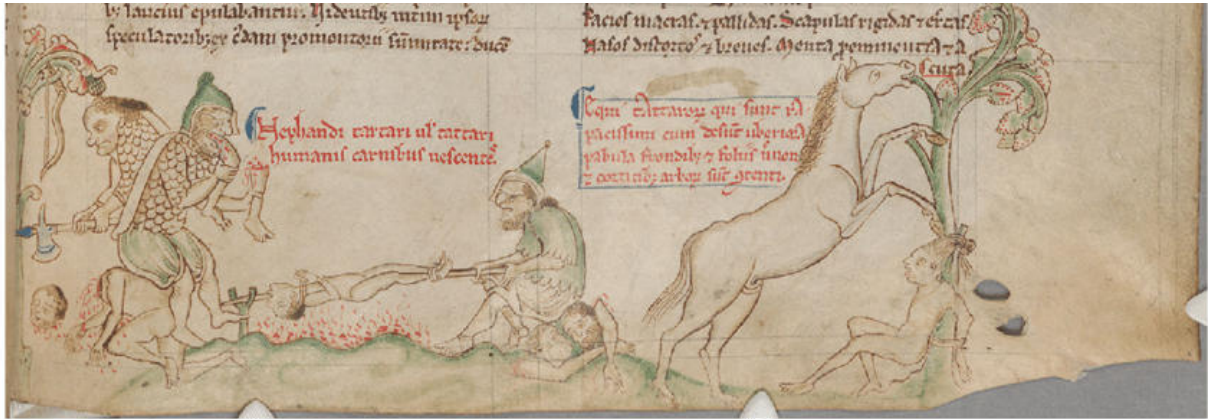 bȝ laucius epulabantur. Uidentibȝ autem ipsoꝝ
speculatoribȝ ex cꝰdam promontorii sūmitate ducē
facies macras ⁊ pallidas. Scapulas rigidas ⁊ erc̄tas.
Nasos distortos ⁊ breues. Menta prominentia ⁊ a
cuta.
Nephandi tartari ul' tattari
humanis carnibus uescentes.
Equi tattaroꝝ qui sunt ra
pacissimi cum desūt uberiora
pabula frondibȝ ⁊ foliis n̄non
⁊ corticibȝ arboꝝ sūt ꝯtenti.